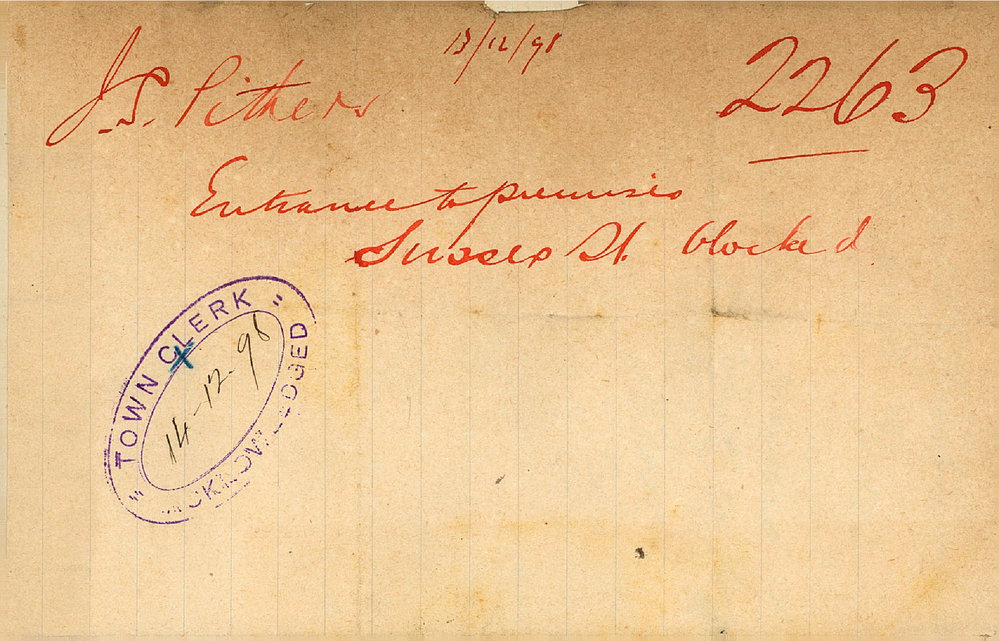 13/12/98
J.S. Pithers
2263
Entrance to premises
Sussex St. blocked
TOWN CLERK
14-12-98
ACKNOWLEDGED